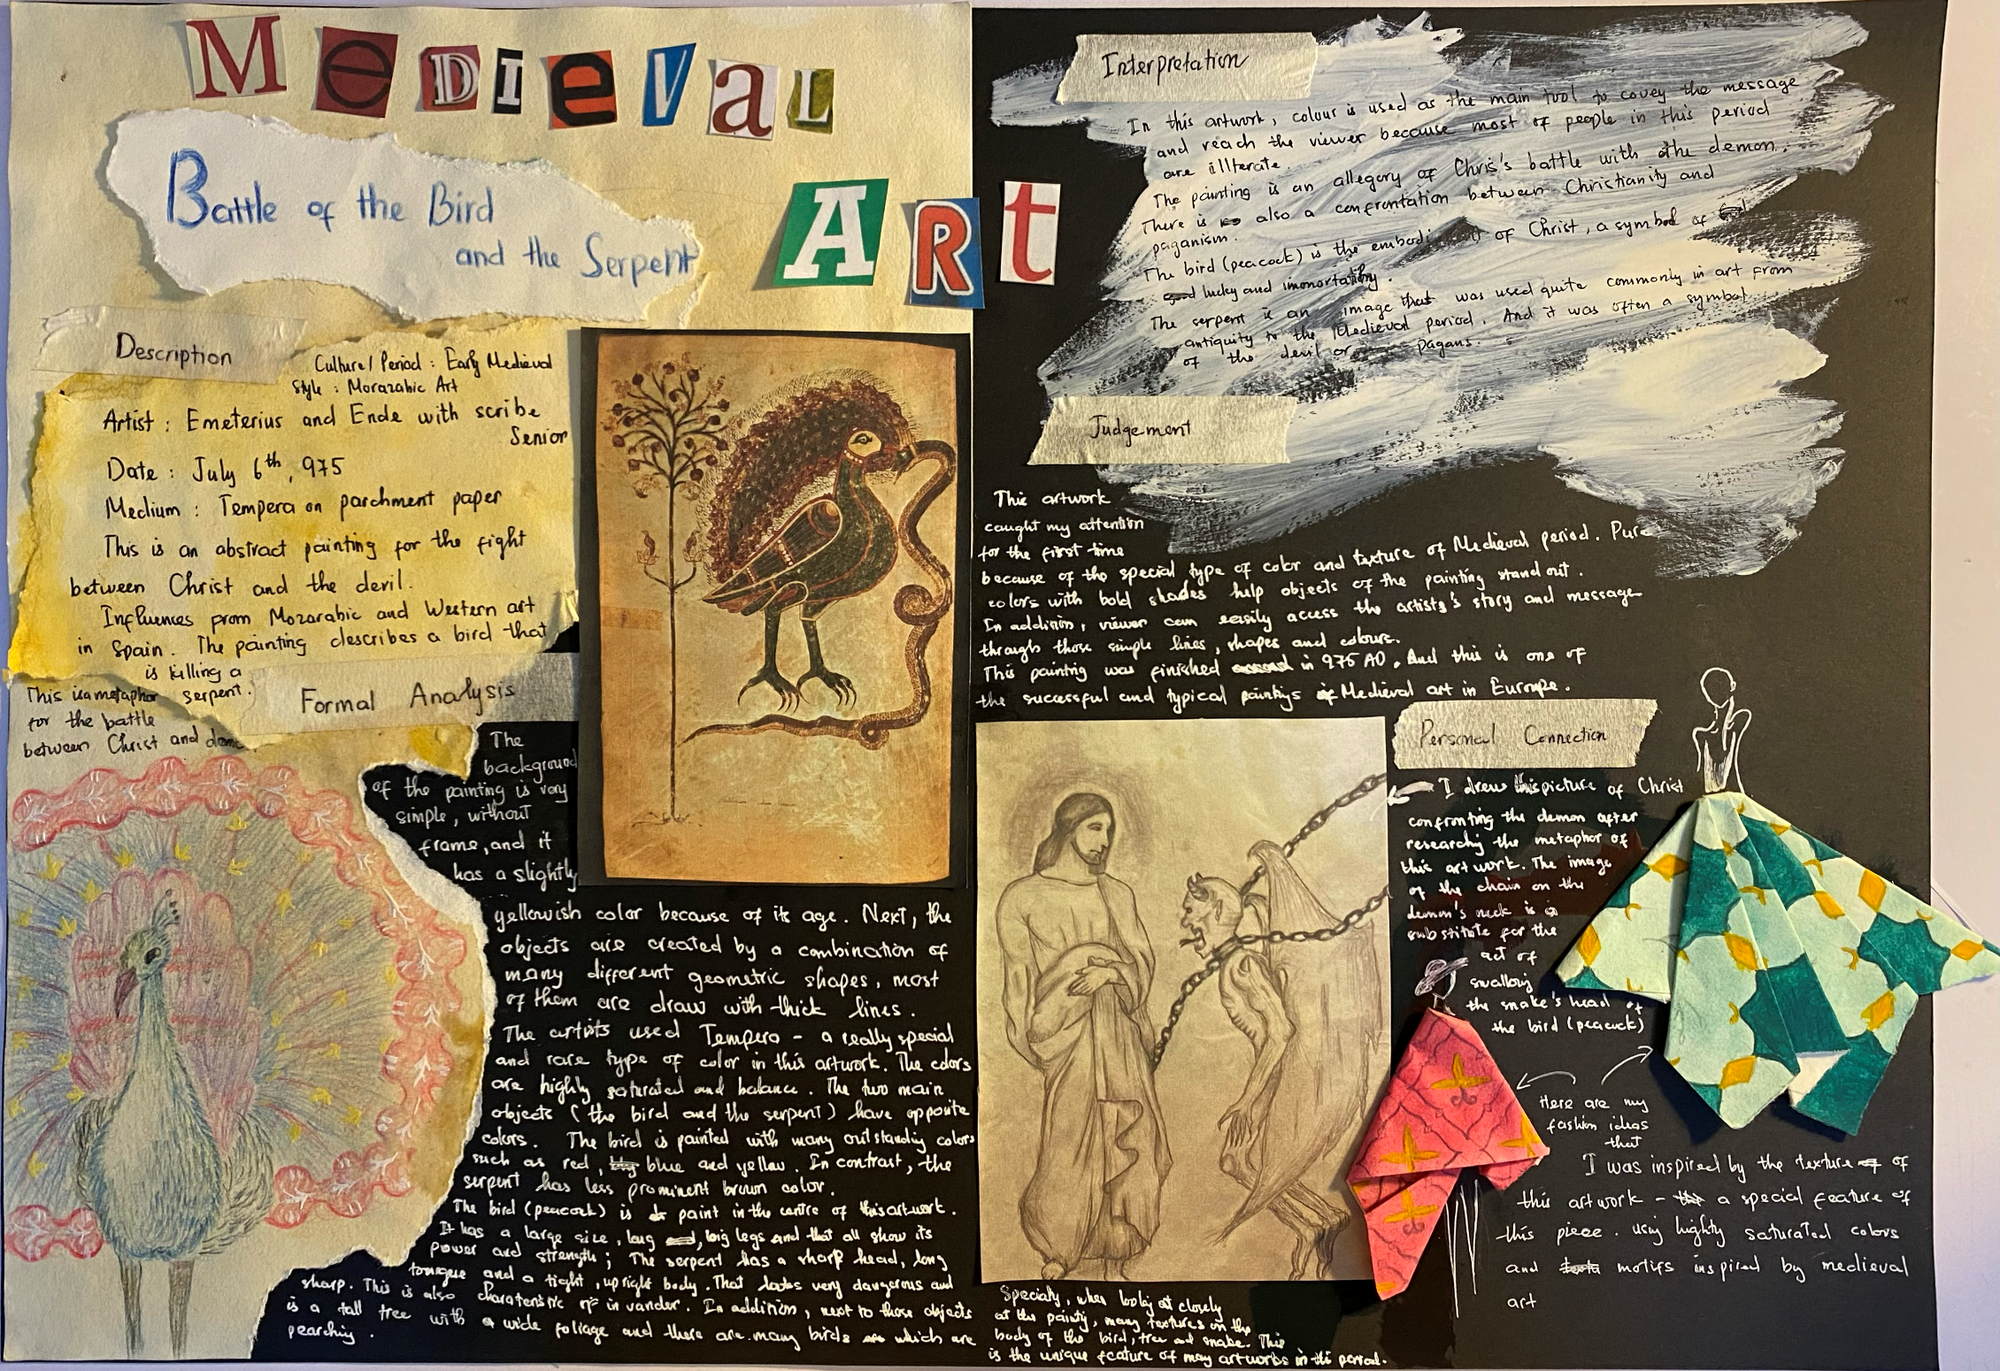 MEDIEVAL
ART
Battle of the Bird
and the Serpent
Description
Culture/Period : Early Medieval
Style : Morazabic Art
Artist : Emeterius and Ende with scribe
Senior
Date : July 6th, 975
Medium : Tempera on parchment paper
This is an abstract painting for the fight
between Christ and the devil.
Influences from Mozarabic and Western art
in Spain. The painting describes a bird that
is killing a
serpent.
This is a metaphor
for the battle
between Christ and
Formal Analysis
The
background
of the painting is very
simple, without
frame, and it
has a slightly
yellowish color because of its age. Next, the
objects are created by a combination of
many different geometric shapes, most
of them are draw with thick lines.
The artists used Tempera - a really special
and rare type of color in this artwork. The colors
are highly saturated and balance. The two main
objects (the bird and the serpent) have opposite
colors. The bird is painted with many outstanding colors
such as red, blue and yellow. In contrast, the
serpent has less prominent brown color.
The bird (peacock) is paint in the centre of this artwork.
It has a large size, long big legs and that all show its
power and strength; The serpent has a sharp head, long
tongue and a tight, upright body. That looks very dangerous and
sharp. This is also in vander. In addition, next to those objects
is a tall tree with a wide foliage and there are many birds which are
pearching.
Interpretation
In this artwork, colour is used as the main tool to covey the message
and reach the viewer because most of people in this period
are illterate.
The painting is an allegory of Chris's battle with the demon.
There is also a confrontation between Christianity and
paganism.
The bird (peacock) is the of Christ, a symbol of
lucky and
The serpent is an image that was used quite commonly in art from
antiquity to the Medieval period. And it was often a symbol
of the devil or pagans.
Judgement
This artwork
caught my attention
for the first time
because of the special type of color and texture of Medieval period. Pure
colors with bold shades help objects of the painting stand out.
In addition, viewer can easily access the artists's story and message
through those simple lines, shapes and colours.
This painting was finished in 975 AD. And this is one of
the successful and typical paintings of Medieval art in Europe.
Personal Connection
I drew this picture of Christ
confronting the demon after
researching the metaphor of
this art work. The image
of the chain on the
demon's neck is a
substitute for the
act of
swallowing
the snake's head of
the bird (peacock)
Here are my
fashion ideas
that
I was inspired by the texture of
this artwork - a special feature of
this piece. using highly saturated colors
and motifs inspired by medieval
art
Specialy, when looking at closely
at the painty, many textures on the
body of the bird, tree and snake. This
is the unique feature of many artworks in this period.